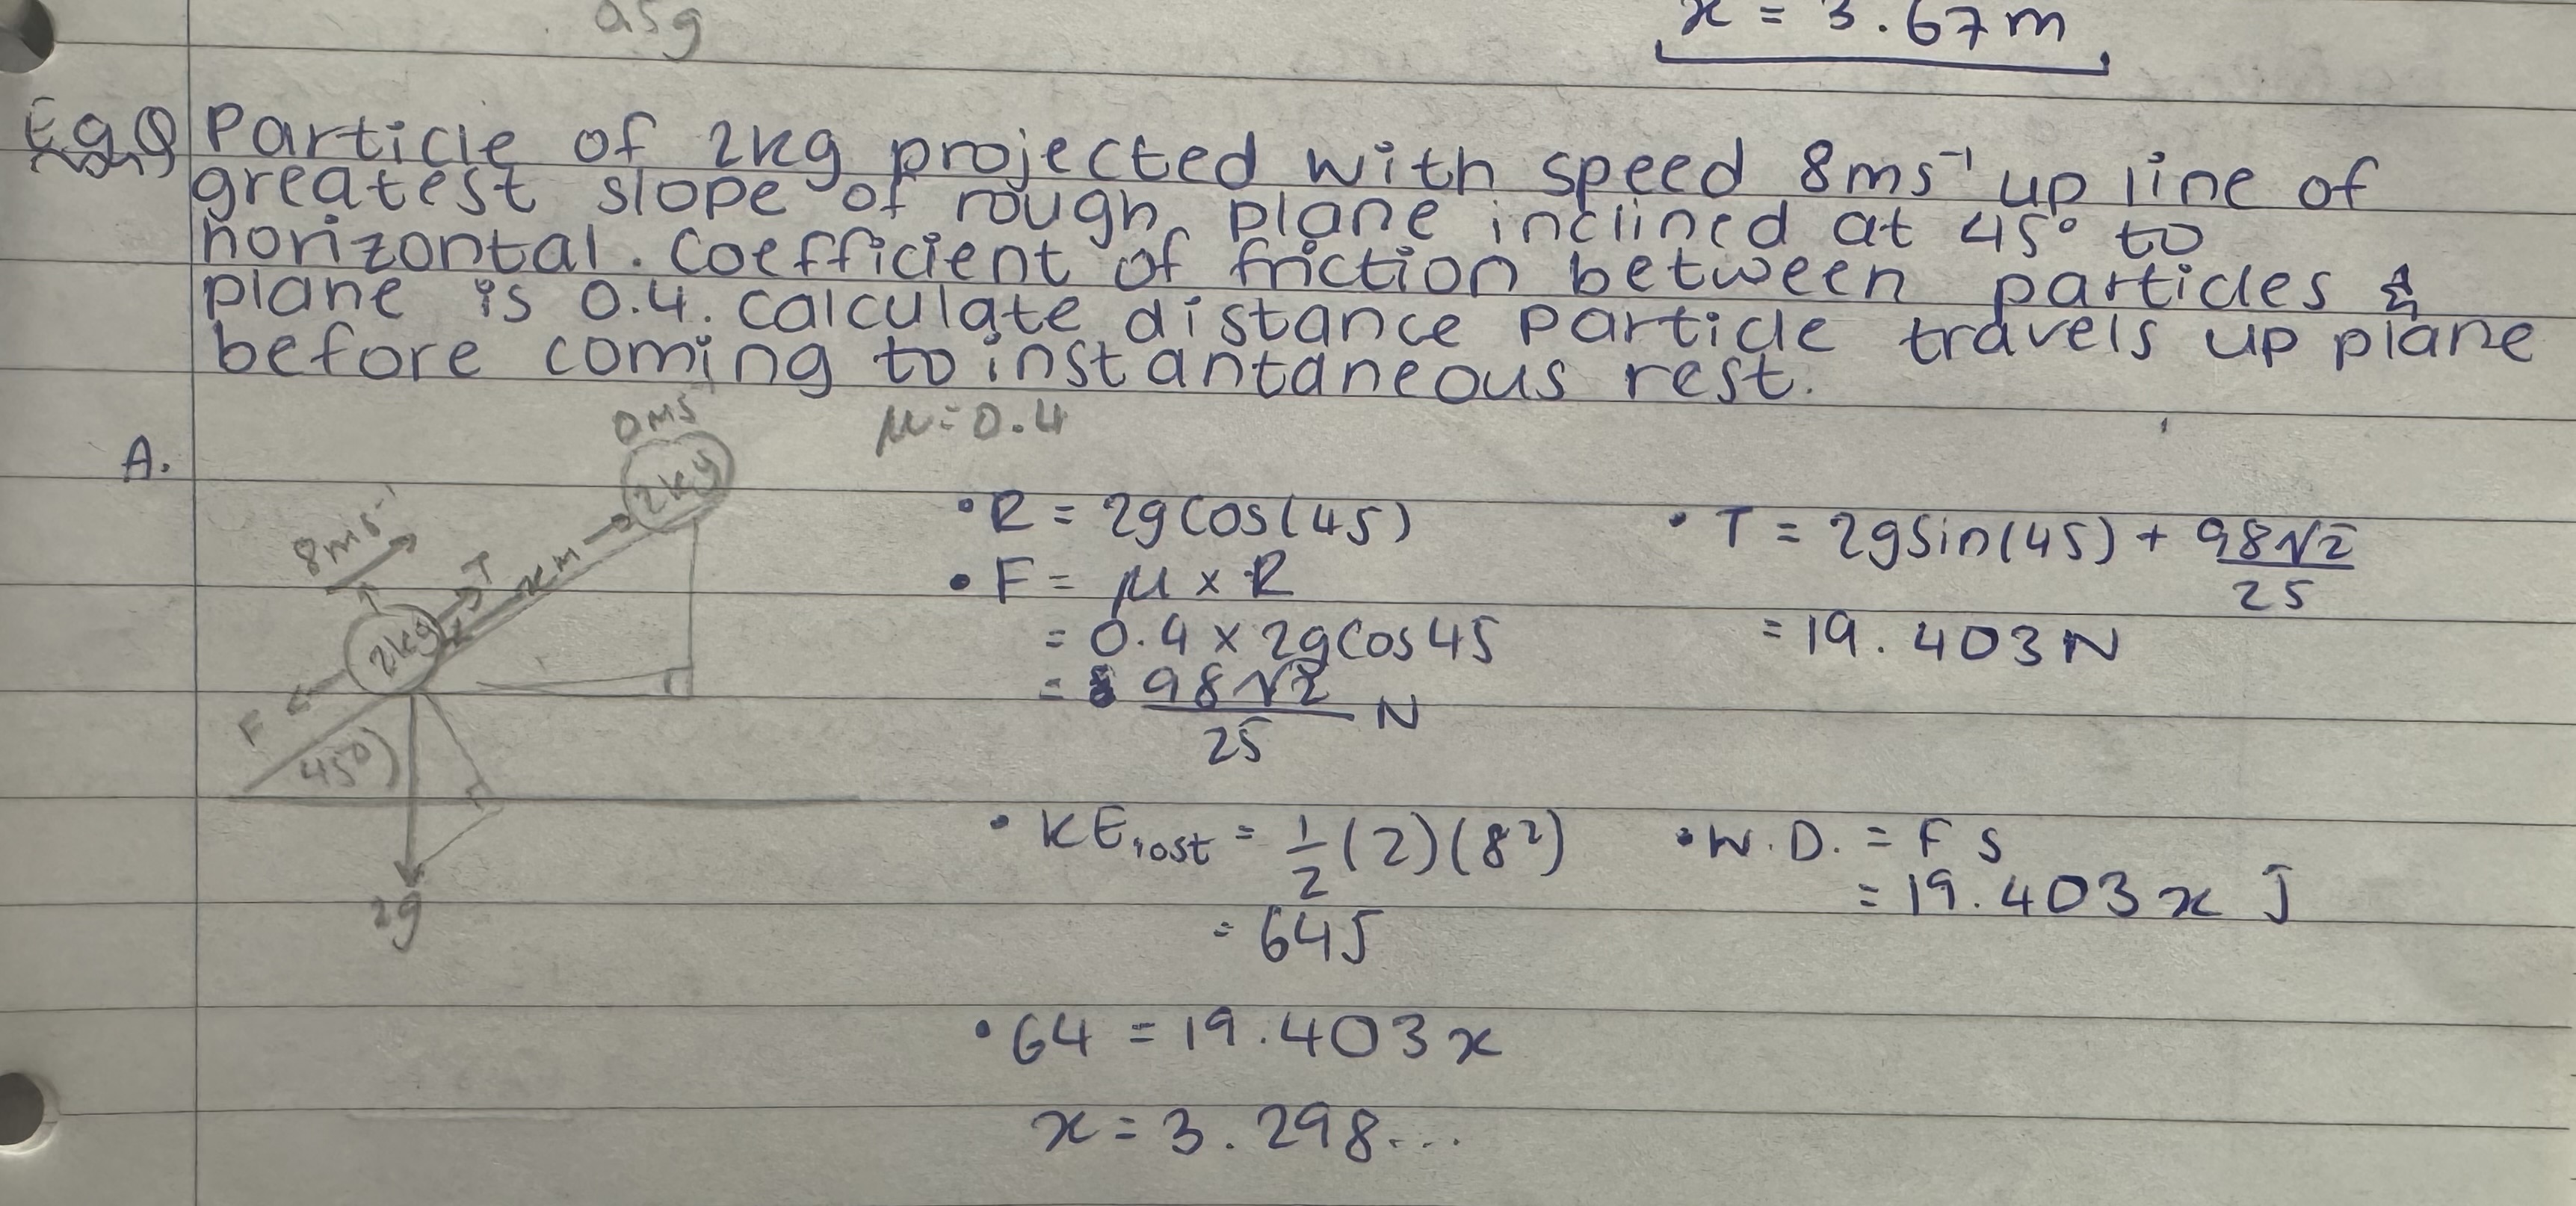 a5g
x = 3.67m
Eg9 Particle of 2kg projected with speed 8ms⁻¹ up line of
greatest slope of rough plane inclined at 45° to
horizontal. Coefficient of friction between particles &
plane is 0.4. Calculate distance particle travels up plane
before coming to instantaneous rest.
A.
μ=0.4
0ms⁻¹
2kg
8ms⁻¹
T
xm
2kg
F
45°
2g
• R = 2gcos(45)
• F = μ x R
= 0.4 x 2gcos45
= 98√2/25 N
• T = 2gsin(45) + 98√2/25
= 19.403N
• KElost = 1/2(2)(8²)
= 64J
• W.D. = F s
= 19.403x J
• 64 = 19.403x
x = 3.298...